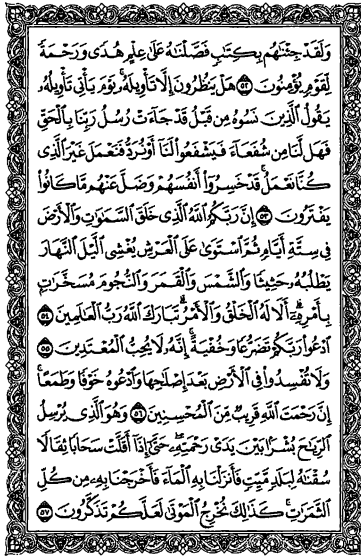 وَلَقَدْ جِئْنَٰهُم بِكِتَٰبٍ فَصَّلْنَٰهُ عَلَىٰ عِلْمٍ هُدًى وَرَحْمَةً
لِّقَوْمٍ يُؤْمِنُونَ ٥٢ هَلْ يَنظُرُونَ إِلَّا تَأْوِيلَهُۥ يَوْمَ يَأْتِى تَأْوِيلُهُۥ
يَقُولُ الَّذِينَ نَسُوهُ مِن قَبْلُ قَدْ جَآءَتْ رُسُلُ رَبِّنَا بِالْحَقِّ
فَهَل لَّنَا مِن شُفَعَآءَ فَيَشْفَعُوا۟ لَنَآ أَوْ نُرَدُّ فَنَعْمَلَ غَيْرَ الَّذِى
كُنَّا نَعْمَلُ قَدْ خَسِرُوٓا۟ أَنفُسَهُمْ وَضَلَّ عَنْهُم مَّا كَانُوا۟
يَفْتَرُونَ ٥٣ إِنَّ رَبَّكُمُ اللَّهُ الَّذِى خَلَقَ السَّمَٰوَٰتِ وَالْأَرْضَ
فِى سِتَّةِ أَيَّامٍ ثُمَّ اسْتَوَىٰ عَلَى الْعَرْشِ يُغْشِى الَّيْلَ النَّهَارَ
يَطْلُبُهُۥ حَثِيثًا وَالشَّمْسَ وَالْقَمَرَ وَالنُّجُومَ مُسَخَّرَٰتٍ
بِأَمْرِهِۦٓ أَلَا لَهُ الْخَلْقُ وَالْأَمْرُ تَبَارَكَ اللَّهُ رَبُّ الْعَٰلَمِينَ ٥٤
ادْعُوا۟ رَبَّكُمْ تَضَرُّعًا وَخُفْيَةً إِنَّهُۥ لَا يُحِبُّ الْمُعْتَدِينَ ٥٥
وَلَا تُفْسِدُوا۟ فِى الْأَرْضِ بَعْدَ إِصْلَٰحِهَا وَادْعُوهُ خَوْفًا وَطَمَعًا
إِنَّ رَحْمَتَ اللَّهِ قَرِيبٌ مِّنَ الْمُحْسِنِينَ ٥٦ وَهُوَ الَّذِى يُرْسِلُ
الرِّيَٰحَ بُشْرًۢا بَيْنَ يَدَىْ رَحْمَتِهِۦ حَتَّىٰٓ إِذَآ أَقَلَّتْ سَحَابًا ثِقَالًا
سُقْنَٰهُ لِبَلَدٍ مَّيِّتٍ فَأَنزَلْنَا بِهِ الْمَآءَ فَأَخْرَجْنَا بِهِۦ مِن كُلِّ
الثَّمَرَٰتِ كَذَٰلِكَ نُخْرِجُ الْمَوْتَىٰ لَعَلَّكُمْ تَذَكَّرُونَ ٥٧